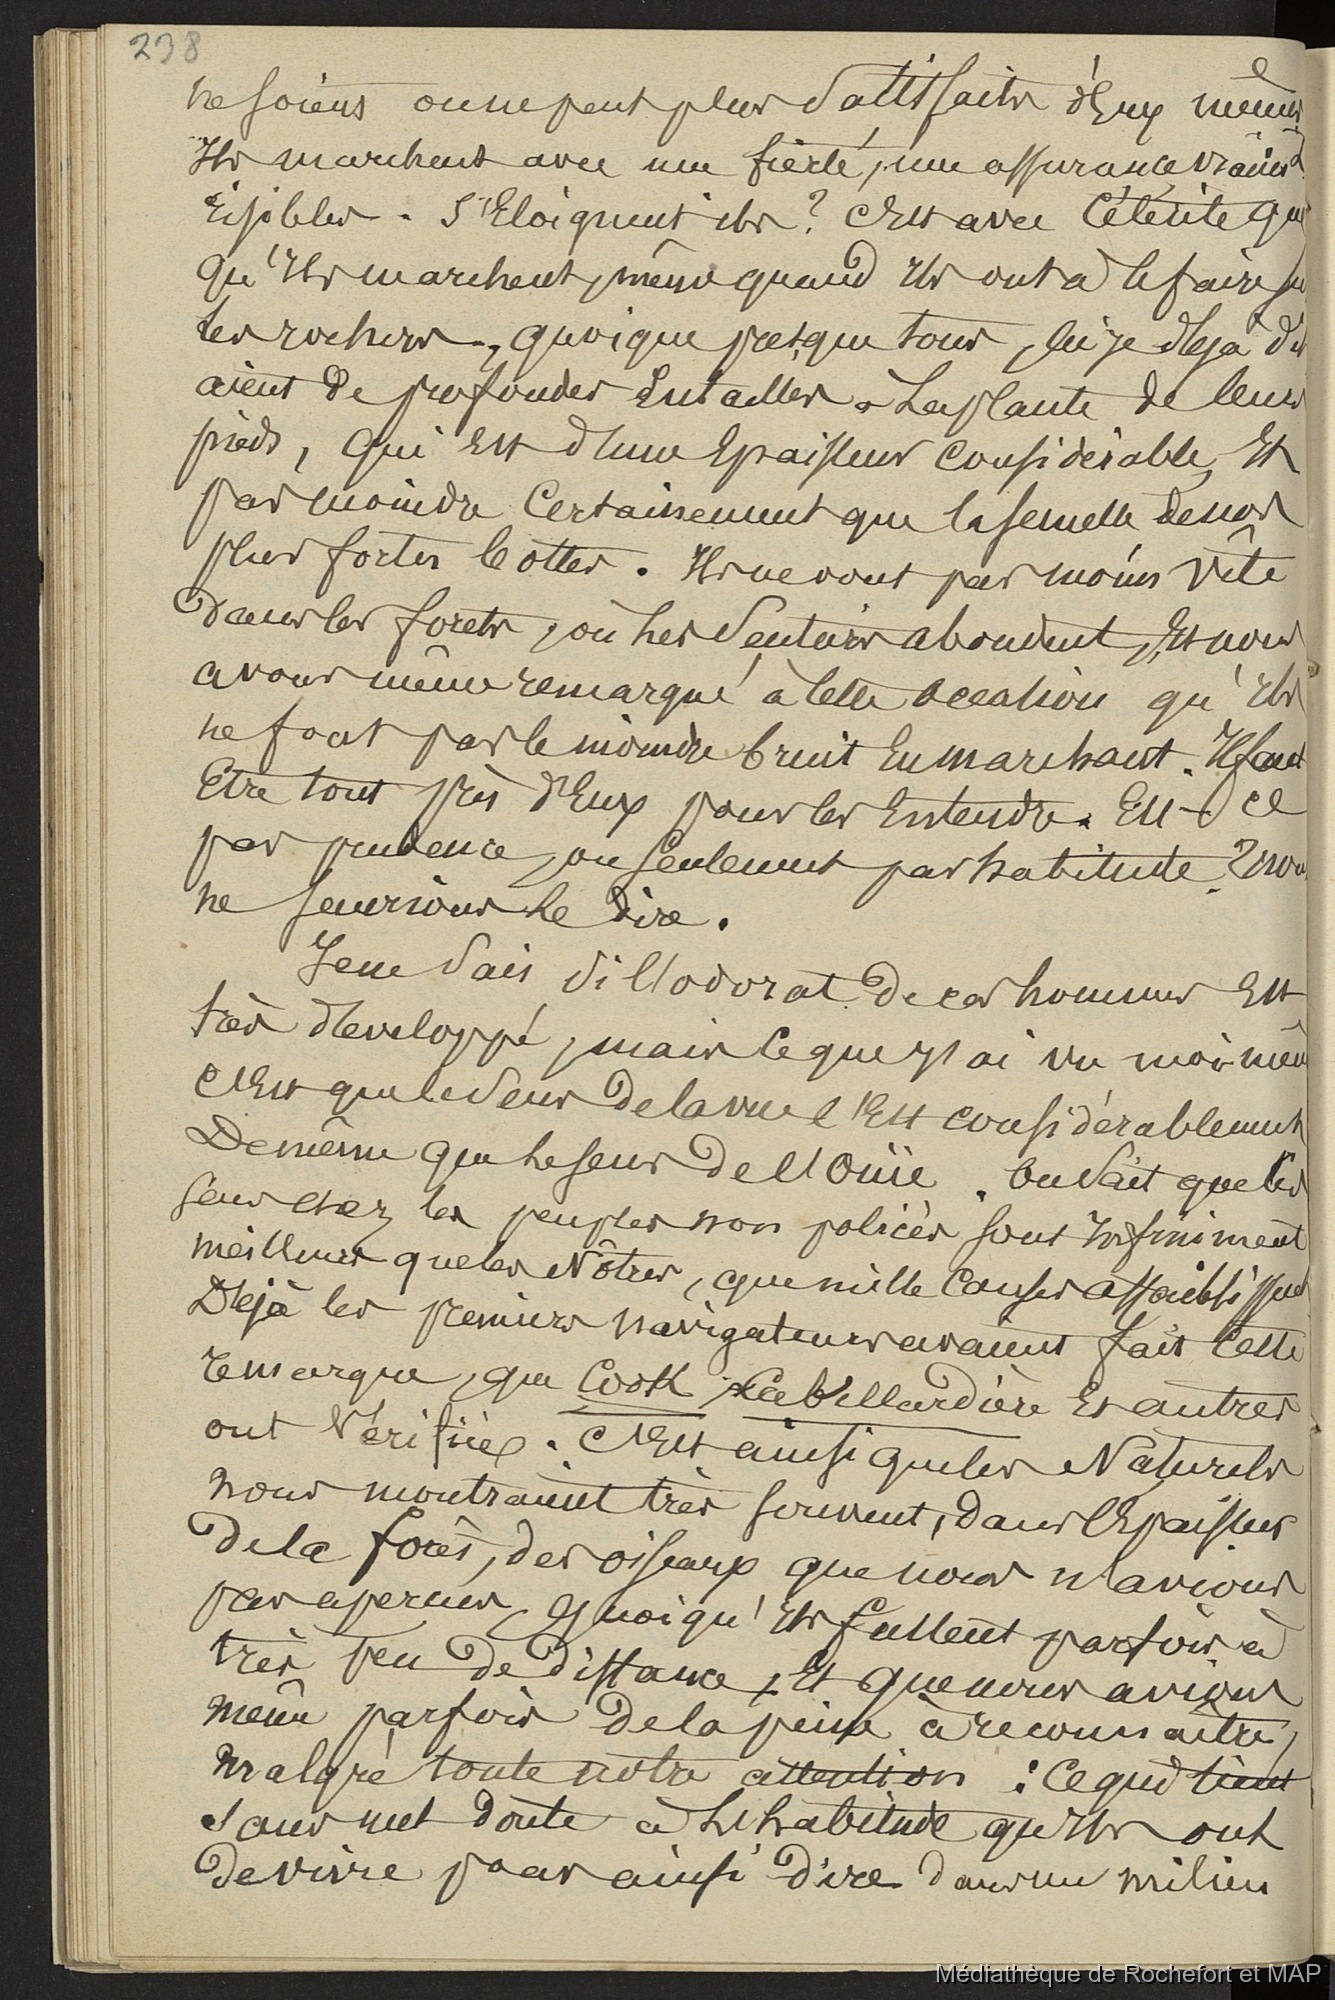 238
ne soient on ne peut plus Sattisfaits d'Eux mêmes
Ils marchent avec une fièrté, une assurance vraiment
risibles. S'Eloignent ils ? C'Est avec Célérité
qu'Ils marchent, même quand Ils ont à le faire sur
les rochers, quoique presque tous, ai je déjà dit
aient de profondes Entailles à La plante de leurs
pieds, qui Est d'une Epaisseur Considérable, Et
pas moindre Certainement que la semelle de nos
plus fortes bottes. Ils ne vont pas moins vîte
dans les forets, où Les Sentiers abondent, Et nous
avons même remarqué à Cette occasion qu'Ils
ne font pas le moindre bruit En marchant. Il faut
Etre tout près d'Eux pour les Entendre. Est-ce
par prudence, ou seulement par habitude ? nous
ne saurions Le dire.
Je ne Sais Si l'odorat de ces hommes Est
très développé, mais Ce que j'ai vu moi-même
C'Est que le Sens de la vue l'Est considérablement
De même que Le sens de l'Ouïe. On Sait que les
sens chez les peuples non policès sont Infiniment
meilleurs que les Nôtres, que mille Causes affaiblissent
Déjà les premiers navigateurs avaient fait Cette
remarque, que Cook, Labillardière Et autres
ont Vérifiée. C'Est ainsi que les Naturels
nous montraient très souvent, dans l'Epaisseur
de la forêt, des oiseaux que nous n'avions
pas aperçus, quoiqu'Ils fussent parfois à
très peu de distance, Et que nous avions
même parfois de la peine à reconnaître,
malgré toute notre attention : Ce qui tient
sans nul doute à L'habitude qu'Ils ont
de vivre pour ainsi dire dans un milieu
Médiathèque de Rochefort et MAP